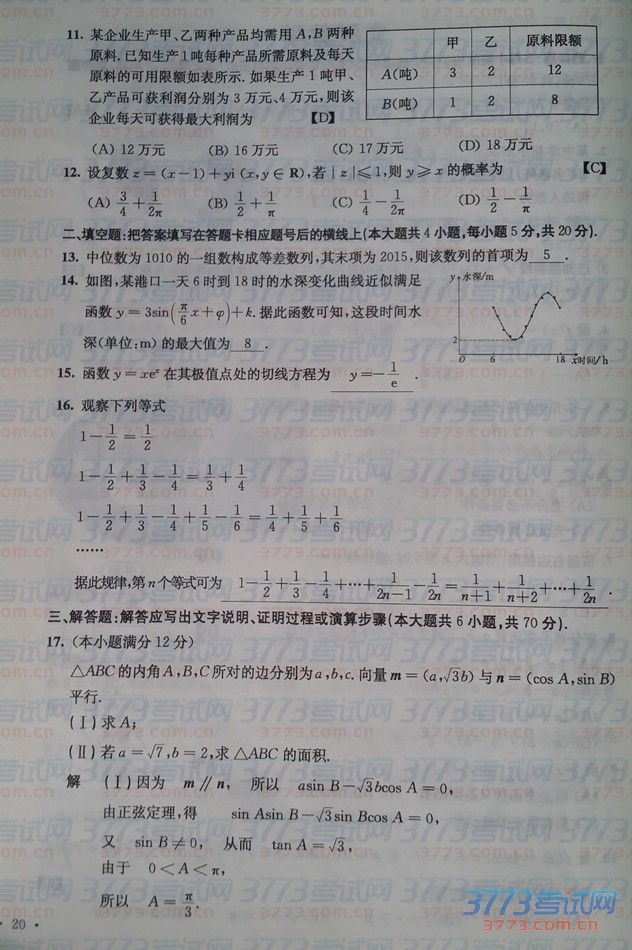 11. 某企业生产甲、乙两种产品均需用 A,B 两种
原料.已知生产1吨每种产品所需原料及每天
原料的可用限额如表所示.如果生产1吨甲、
乙产品可获利润分别为3万元、4万元,则该
企业每天可获得最大利润为 【D】
甲 乙 原料限额
A(吨) 3 2 12
B(吨) 1 2 8
(A) 12万元 (B) 16万元 (C) 17万元 (D) 18万元
12. 设复数 z=(x-1)+yi (x,y∈R),若|z|≤1,则 y≥x 的概率为 【C】
(A) 3/4+1/2π (B) 1/2+1/π (C) 1/4-1/2π (D) 1/2-1/π
二、填空题:把答案填写在答题卡相应题号后的横线上(本大题共4小题,每小题5分,共20分).
13. 中位数为1010的一组数构成等差数列,其末项为2015,则该数列的首项为 5 .
14. 如图,某港口一天6时到18时的水深变化曲线近似满足
函数 y=3sin(π/6 x+φ)+k.据此函数可知,这段时间水
深(单位:m)的最大值为 8 .
y 水深/m
2
0 6 18 x时间/h
15. 函数 y=xeˣ 在其极值点处的切线方程为 y=-1/e .
16. 观察下列等式
1-1/2=1/2
1-1/2+1/3-1/4=1/3+1/4
1-1/2+1/3-1/4+1/5-1/6=1/4+1/5+1/6
……
据此规律,第n个等式可为 1-1/2+1/3-1/4+…+1/2n-1-1/2n=1/n+1+1/n+2+…+1/2n .
三、解答题:解答应写出文字说明、证明过程或演算步骤(本大题共6小题,共70分).
17. (本小题满分12分)
△ABC的内角A,B,C所对的边分别为a,b,c.向量m=(a,√3b)与n=(cos A,sin B)
平行.
(Ⅰ)求A;
(Ⅱ)若a=√7,b=2,求△ABC的面积.
解 (Ⅰ)因为 m∥n, 所以 asin B-√3bcos A=0,
由正弦定理,得 sin Asin B-√3sin Bcos A=0,
又 sin B≠0, 从而 tan A=√3,
由于 0<A<π,
所以 A=π/3.
· 20 ·
3773考试网
3773.com.cn